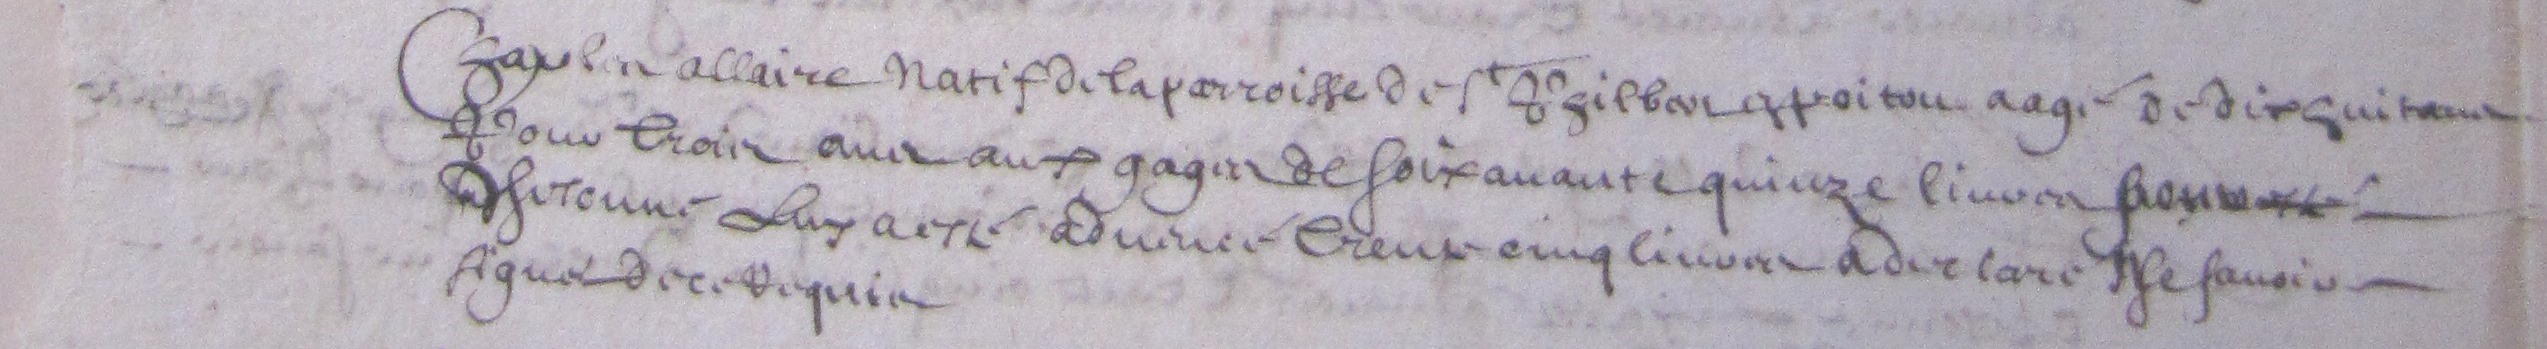 Charles allaire Natif de la parroisse de st Philbert en poitou aagé de dix huit ans
Pour trois ans aux gages de soixante quinze livres
Luy a esté advencé trente cinq livres a declaré Ne scavoir
signer de ce Requis